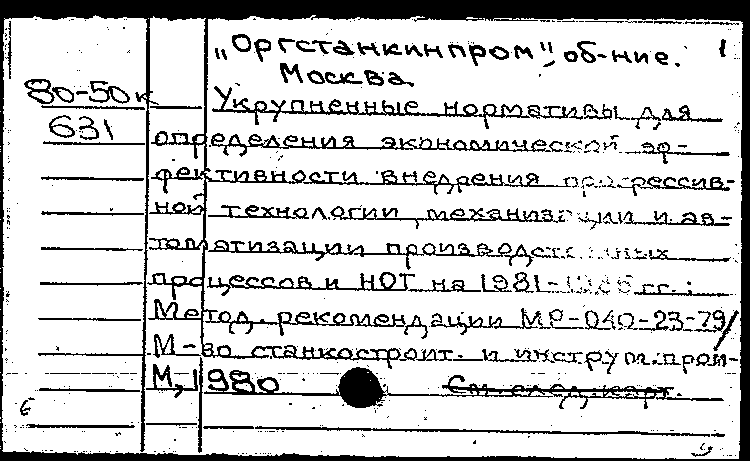 „Оргстанкинпром", об-ние. 1
Москва
80-50к Укрупненные нормативы для
631 определения экономической эф-
фективности внедрения прогрессив-
ной технологии, механизации и ав-
томатизации производственных
процессов и НОТ на 1981-1985 гг.:
Метод. рекомендации МР-040-23-79/
М-во станкостроит. и инструм. пром-
М, 1980 См. след. карт.
6